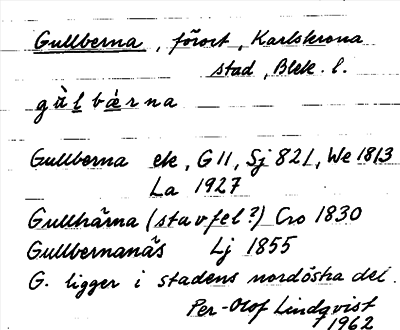 Gullberna, förort, Karlskrona
stad, Blek. l.
gù̀lbǽrna
Gullberna ek, G11, Sj 821, We 1813
La 1927
Gullhärna (stavfel?) Cro 1830
Gullbernanäs Lj 1855
G. ligger i stadens nordöstra del.
Per-Olof Lindqvist
1962